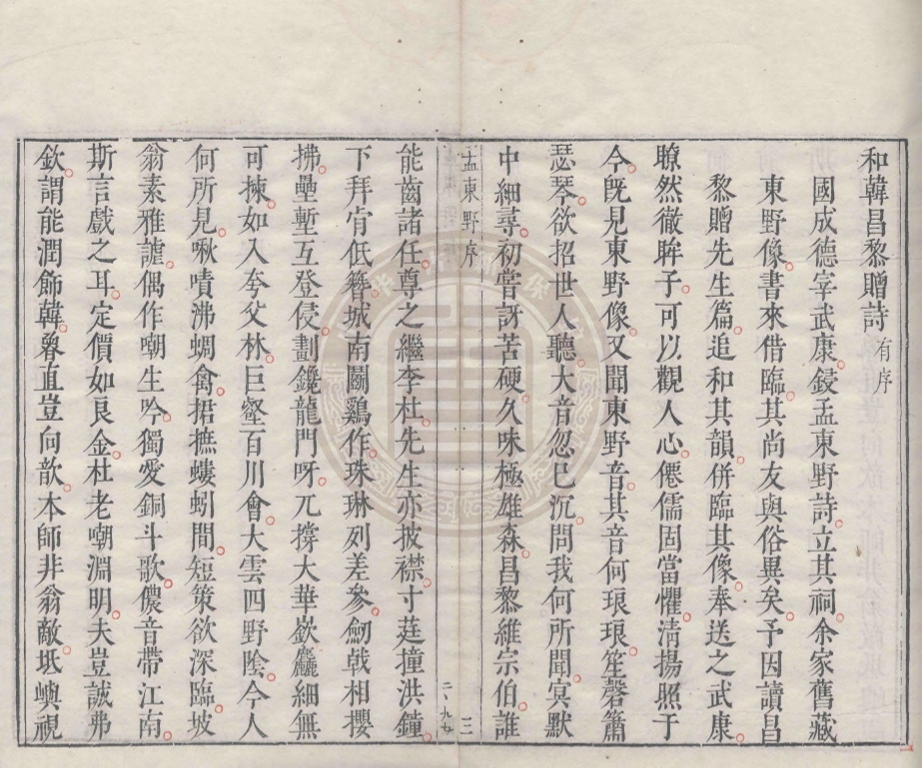 和韓昌黎贈詩有序
國成德宰武康鋟孟東野詩立其祠余家舊藏
東野像書來借臨其尚友與俗異矣予因讀昌
黎贈先生篇追和其韻併臨其像奉送之武康
瞭然徹眸子可以觀人心僊儒固當懼淸揚照于
今旣見東野像又聞東野音其音何琅琅笙磬簫
瑟琴欲招世人聽大音忽已沉問我何所聞冥默
中細尋初嘗訝苦硬久味極雄森昌黎維宗伯誰
孟東野序
三
能齒諸任尊之繼李杜先生亦披襟寸莛撞洪鐘
下拜肯低簪城南鬬鷄作珠琳列差參劒戟相摟
拂壘塹互登侵劃鑱龍門呀兀撐大華嶔麤細無
可揀如入夸父林巨壑百川會大雲四野陰今人
何所見啾嘖沸蜩禽捃摭螻蚓間短策欲深臨坡
翁素雅謔偶作嘲生吟獨愛銅斗歌儂音帶江南
斯言戲之耳定價如良金杜老嘲淵明夫豈誠弗
欽謂能潤飾韓朂直豈向歆本師非翁敵坻嶼視